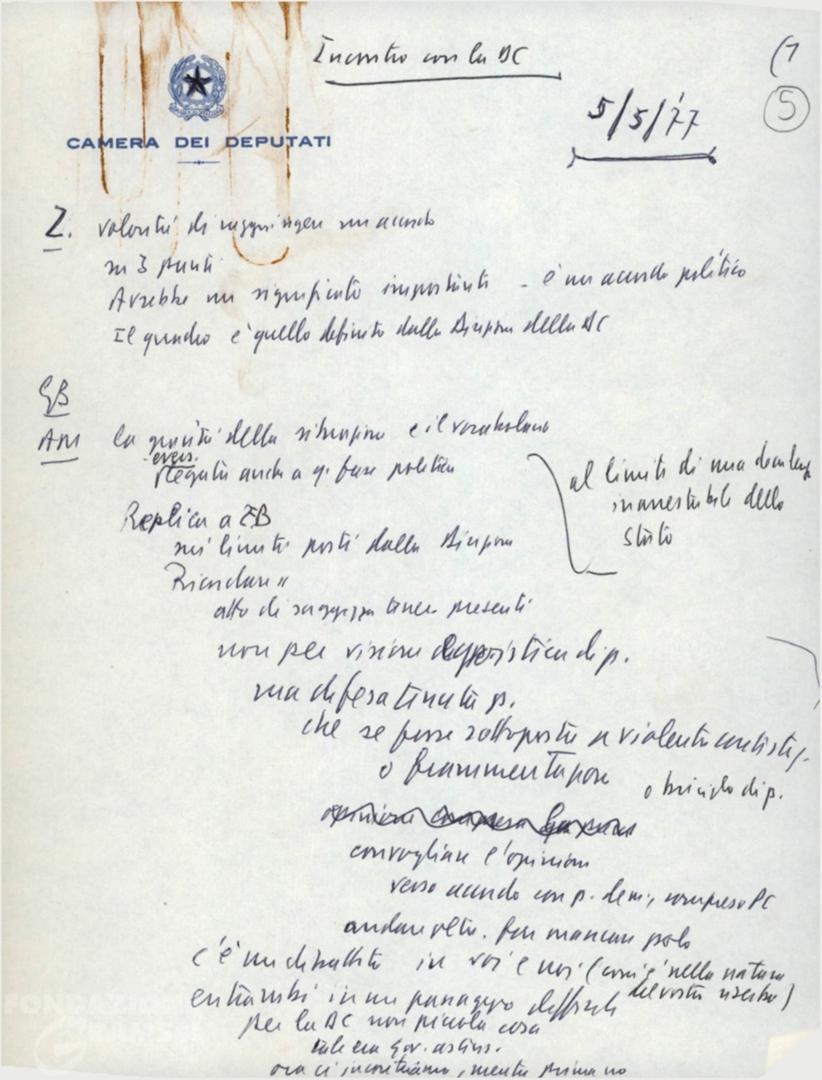 Incontro con la DC
(1
5
5/5/'77
CAMERA DEI DEPUTATI
Z. volontà di raggiungere un accordo
su 3 punti
Avrebbe un significato importante - è un accordo politico
Il quadro è quello definito dalla Direzione della DC
GB
AM la gravità della situazione e il
anche a q. fase politica
al limite di una
inarrestabile dello
Stato
Replica a EB
sui limiti posti dalla Direzione
Ricordare "
atto di saggezza tener presenti
non per visione di p.
ma difesa unità p.
che se fosse sottoposta a violenta
o frammentazione
o briciola di p.
convogliare l'opinione
verso accordo con p. dem., compreso PC
andare oltre. far mancare
c'è un dibattito in voi e noi (com'è nella natura
del vostro
entrambi in un passaggio difficile
per la DC non piccola cosa
gov. astens.
ora ci incontriamo, mentre prima no
FONDAZIONE
GRAMSCI